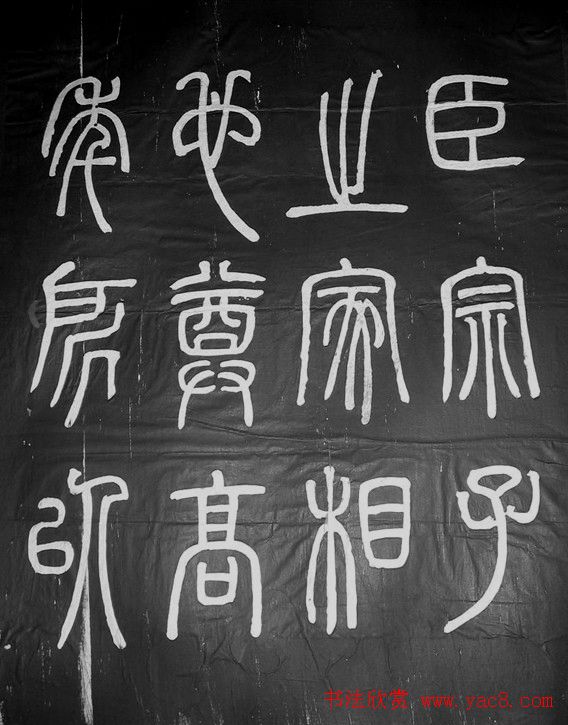 臣宗子
之家相
也尊高
年所以
书法欣赏 www.yac8.com